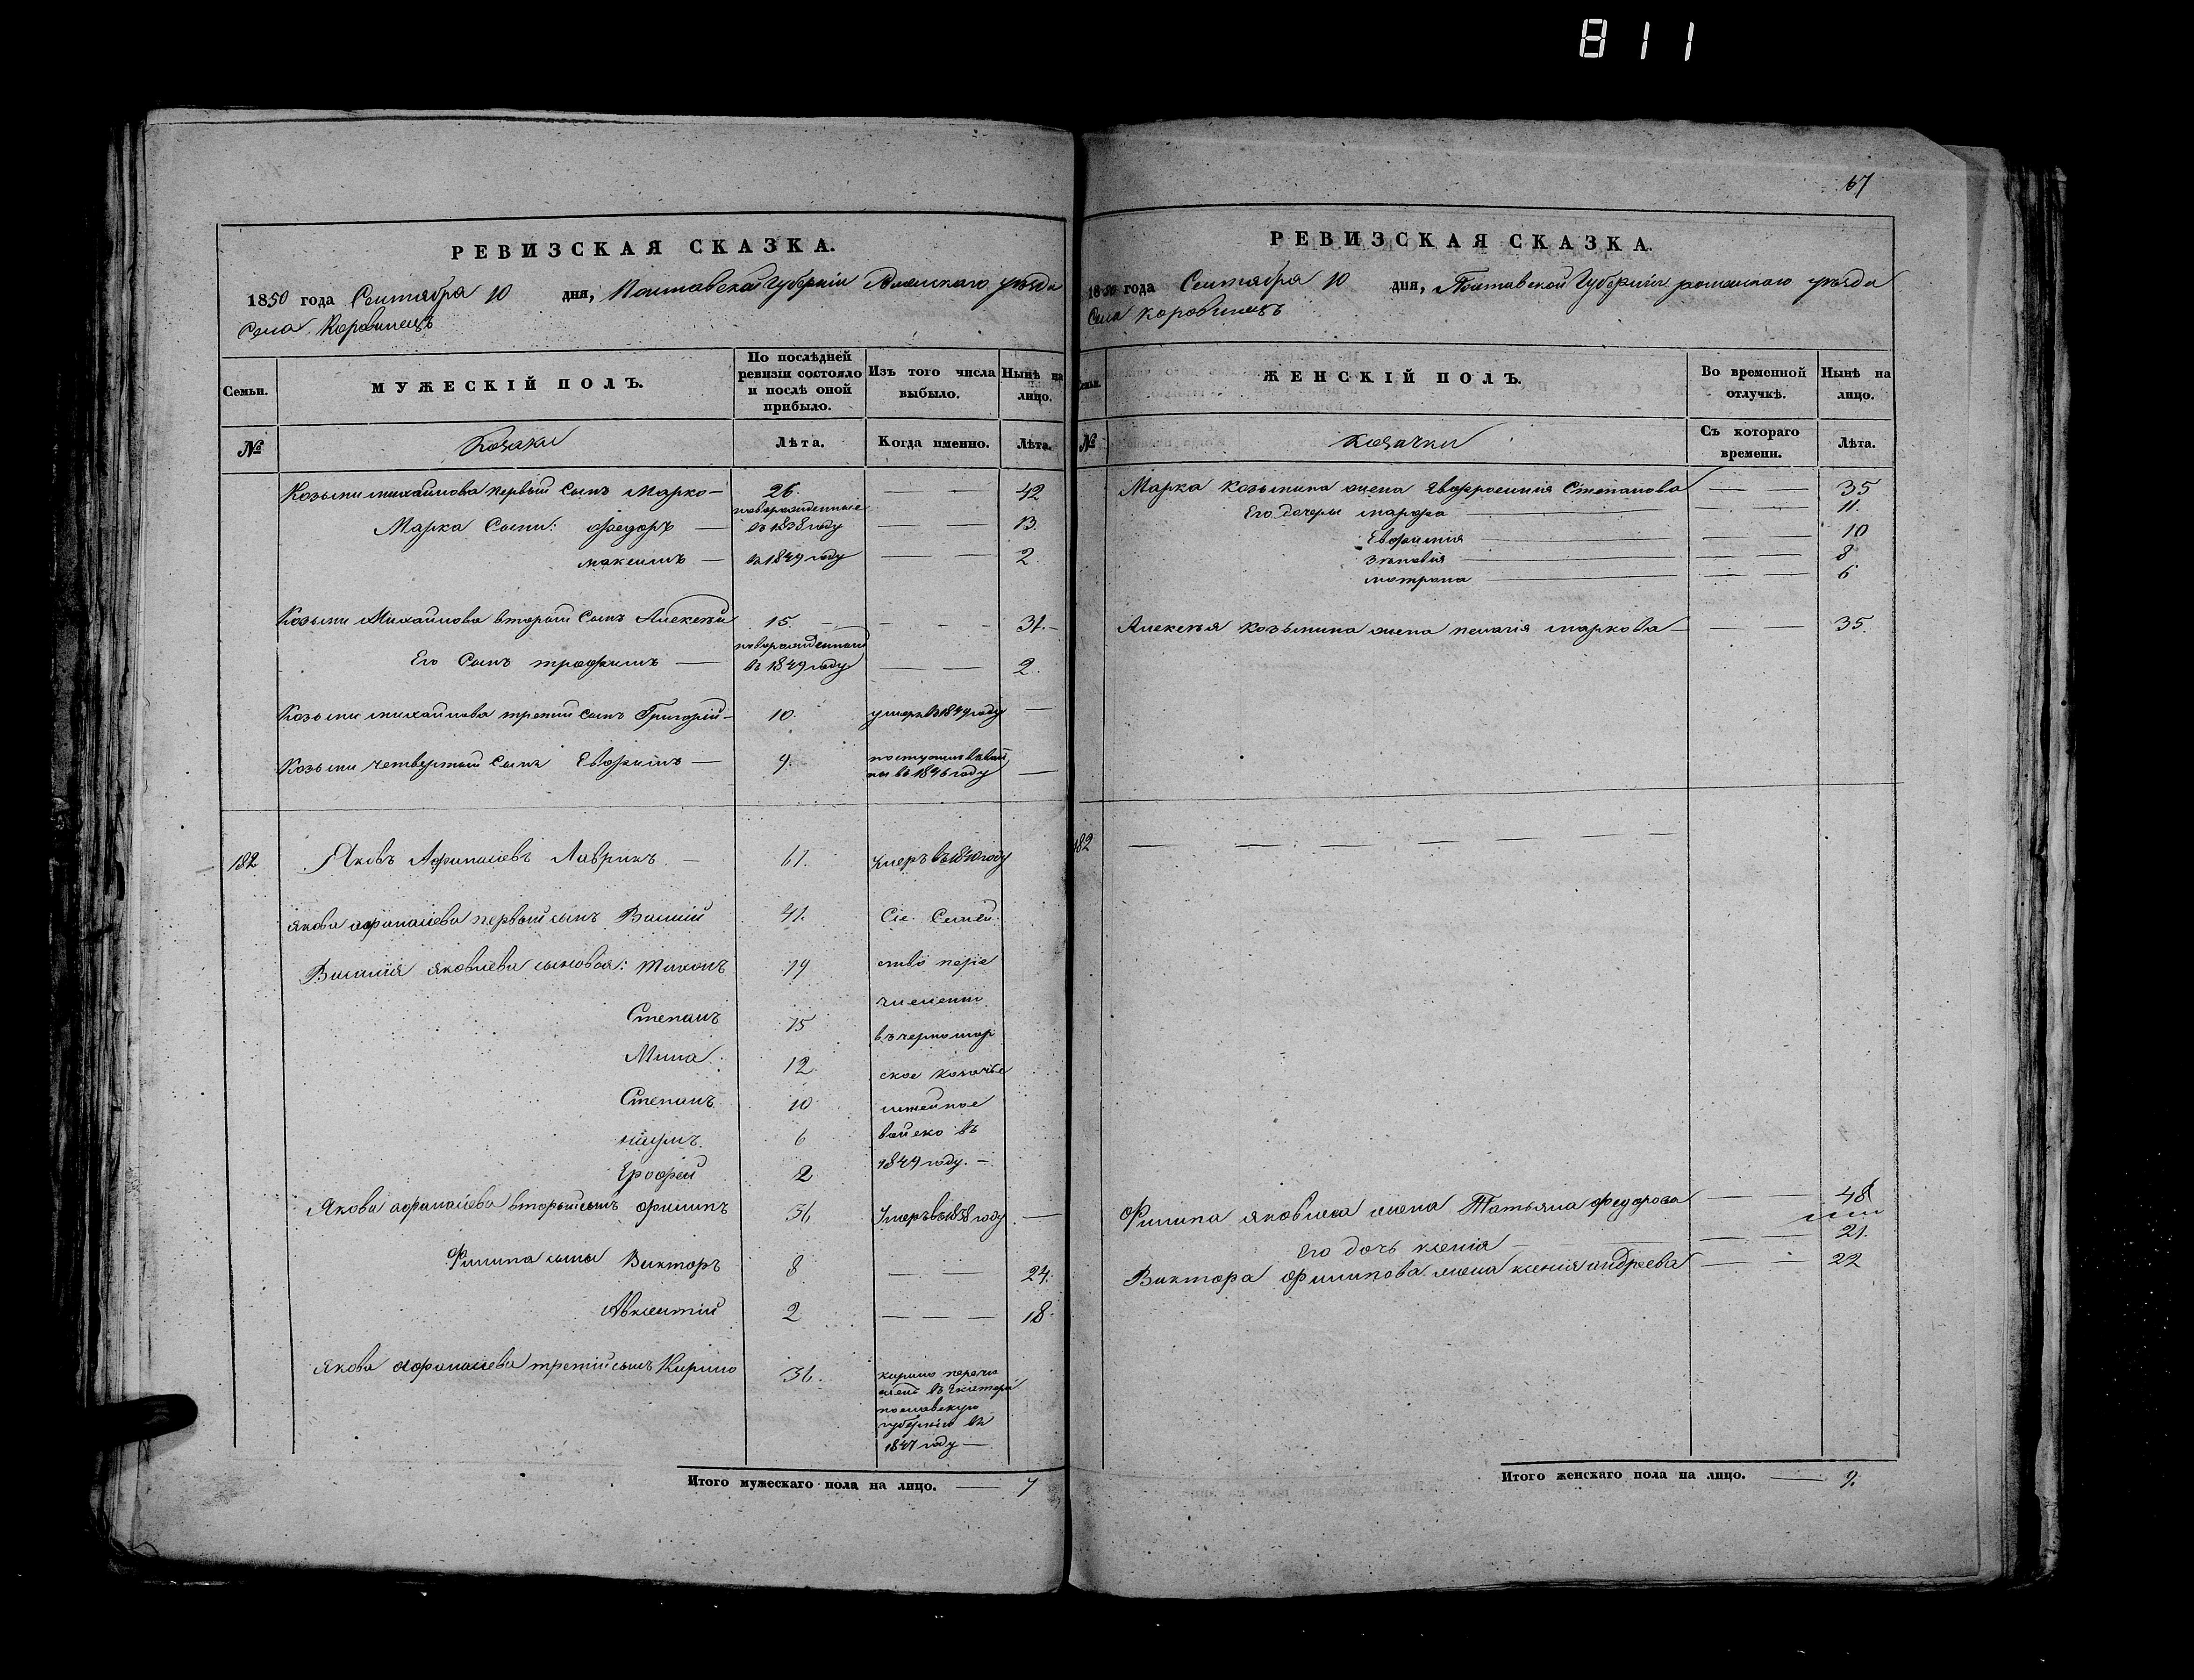 811
67
РЕВИЗСКАЯ СКАЗКА.
1850 года Сентября 10 дня, Полтавской Губерніи Роменскаго уѣзда
Села Коровинецъ
Семьи. МУЖЕСКІЙ ПОЛЪ. По послѣдней ревизіи состояло и послѣ оной прибыло. Изъ того числа выбыло. Нынѣ на лицо.
№ Козаки Лѣта. Когда именно. Лѣта.
Козьмы михайлова первый сынъ Марко — 26. — — 42
новорожденные
Марка Сыни: Федоръ — въ 1838 году — — 13.
максимъ — въ 1849 году — — 2.
Козьмы Михайлова вторый сынъ Алексѣй 15. — — 31. —
новорожденный
Его Сынъ трофимъ — въ 1849 году — — 2.
Козьмы михайлова третій сынъ Григорій — 10. умеръ въ 1849 году —
Козьмы четвертый сынъ Евфимъ — 9. поступилъ
въ 1846 году —
182 Яковъ Афанасіевъ Лаврикъ. — 61. Умеръ въ 1840 году
Якова афанасіева первый сынъ Василій 41. Сіе Семей
Василія яковлева сыновья: тихонъ 19 ство пере
числено
Степанъ 15 въ черномор
Мина 12 ское козачье
Степанъ 10 линейное
6 войско въ
Ерофей 2 1849 году. —
Якова афанасіева вторый сынъ филипъ 36 Умеръ въ 1838 году. —
Филипа сыны Викторъ 8 — — 24.
Авксентій 2 — — — 18.
Якова афанасіева третій сынъ Кирило 36. кирило перечи
сленъ въ Екатери
нославскую
губернію въ
1847 году —
Итого мужескаго пола на лицо. — 7
РЕВИЗСКАЯ СКАЗКА.
1850 года Сентября 10 дня, Полтавской Губерніи роменскаго уѣзда
Села коровинецъ
Семьи. ЖЕНСКІЙ ПОЛЪ. Во временной отлучкѣ. Нынѣ на лицо.
№ Козачки Съ котораго времени. Лѣта.
Марка козьмина жена Евфросинія Степанова — — 35
Его дочери марфа — — — 11.
Евфимія — — — 10
зѣновія — — — 8
мотрона — — — 6
Алексѣя козьмина жена пелагія маркова — — — 35.
182 — — — — — — — —
Филипа яковлева жена Татьяна федорова — — 48
Его дочь ксенія — — — 21.
Виктора филипова жена ксенія андреева — — 22
Итого женскаго пола на лицо. — 9.